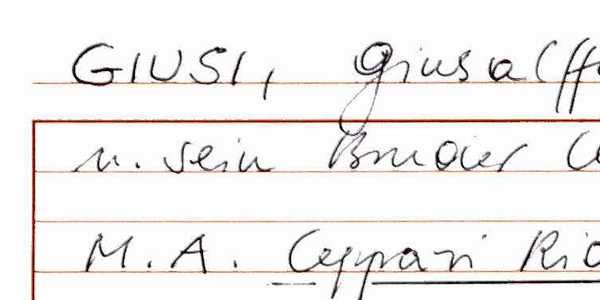 GIUSI, Giusa(ff
u. sein Bruder
M.A. Ceppari Rid